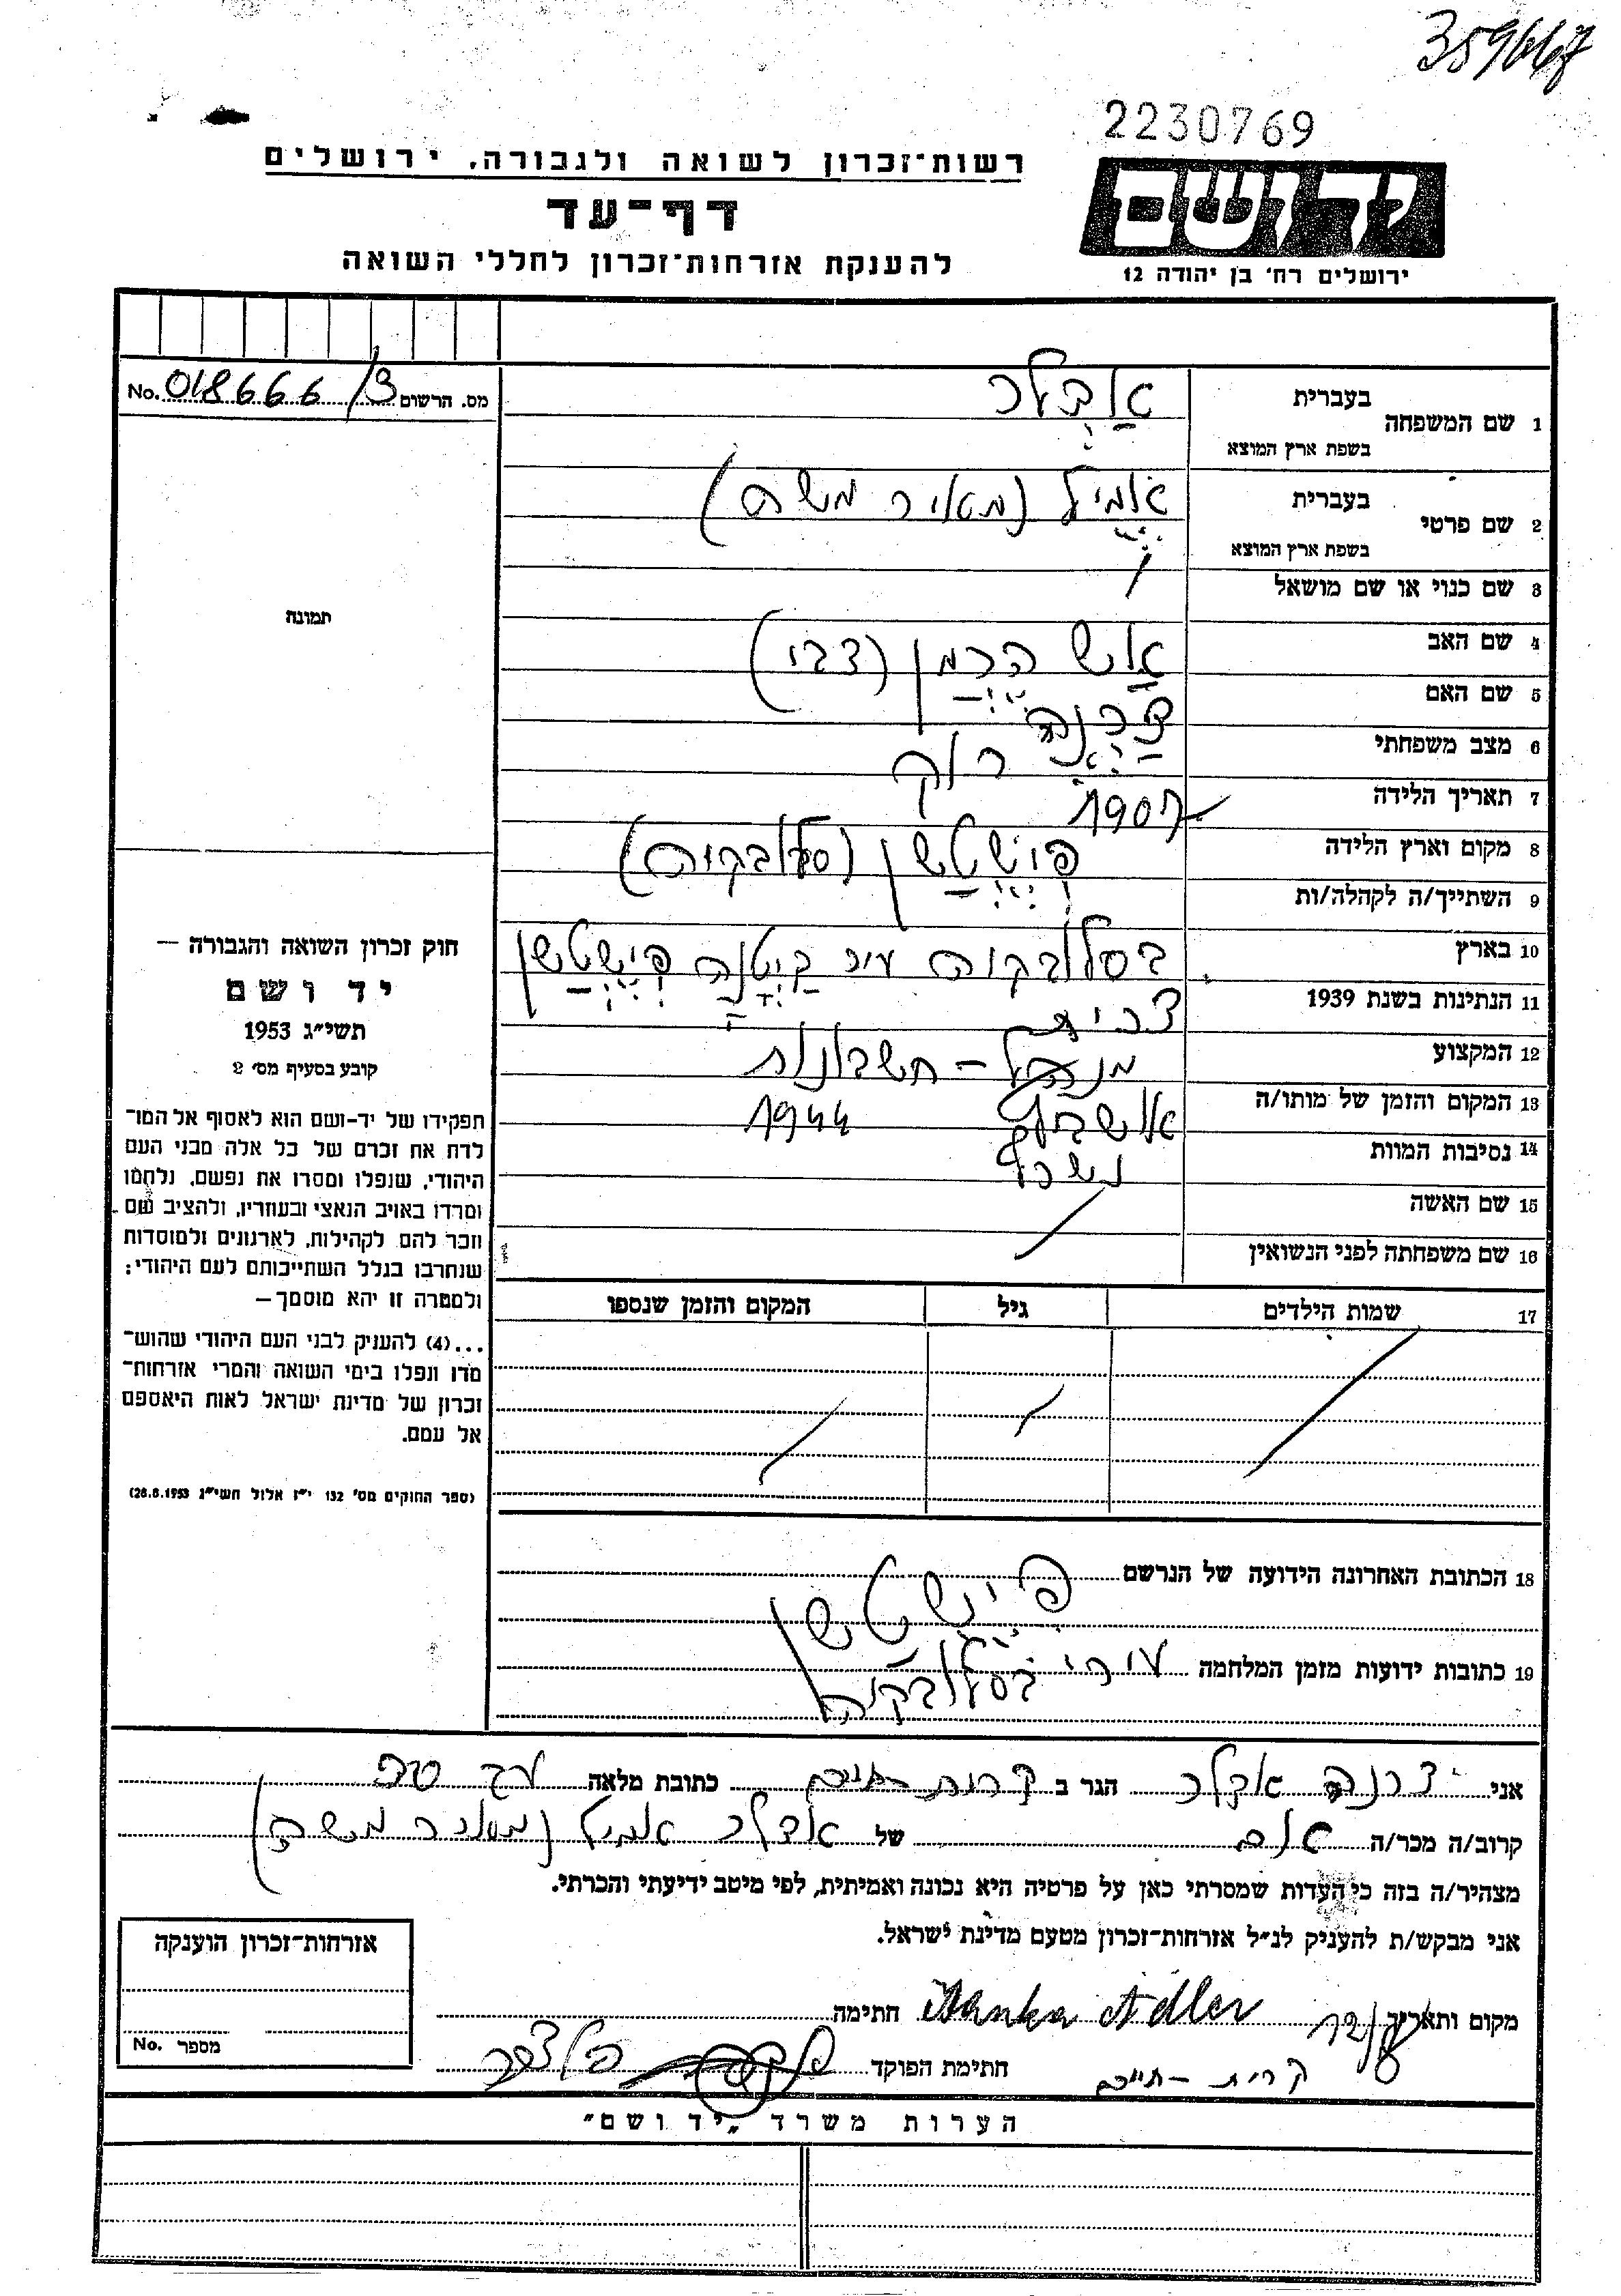 359667
2230769
יד ושם
ירושלים רח' בן יהודה 12
רשות-זכרון לשואה ולגבורה, ירושלים
דף-עד
להענקת אזרחות-זכרון לחללי השואה
מס. הרשום 018666/3 No.
תמונה
1 שם המשפחה בעברית אדלר
בשפת ארץ המוצא
2 שם פרטי בעברית אמיל (מאיר משה)
בשפת ארץ המוצא
3 שם כנוי או שם מושאל /
4 שם האב הרמן (צבי)
5 שם האם
6 מצב משפחתי רוק
7 תאריך הלידה 1907
8 מקום וארץ הלידה פישטשן (סלובקיה)
9 השתייך/ה לקהלה/ות
10 בארץ בסלובקיה עיר קיטנה פישטשן
11 הנתינות בשנת 1939
12 המקצוע מנהל - חשבונות
13 המקום והזמן של מותו/ה אושביץ 1944
14 נסיבות המוות נשרף
15 שם האשה
16 שם משפחתה לפני הנשואין
17 שמות הילדים גיל המקום והזמן שנספו
חוק זכרון השואה והגבורה —
יד ושם
תשי"ג 1953
קובע בסעיף מס' 2
תפקידו של יד-ושם הוא לאסוף אל המו-
לדת את זכרם של כל אלה מבני העם
היהודי, שנפלו ומסרו את נפשם, נלחמו
ומרדו באויב הנאצי ובעוזריו, ולהציב שם
וזכר להם לקהילות, לארגונים ולמוסדות
שנחרבו בגלל השתייכותם לעם היהודי;
ולמטרה זו יהא מוסמך —
...(4) להעניק לבני העם היהודי שהוש-
מדו ונפלו בימי השואה והמרי אזרחות-
זכרון של מדינת ישראל לאות היאספם
אל עמם.
(ספר החוקים מס' 132 י"ז אלול תשי"ג 28.8.1953)
18 הכתובת האחרונה הידועה של הנרשם פישטשן
19 כתובות ידועות מזמן המלחמה
בסלובקיה
אני אדלר הגר ב קרית חיים כתובת מלאה
קרוב/ה מכר/ה אם של אדלר אמיל (מאיר משה)
מצהיר/ה בזה כי העדות שמסרתי כאן על פרטיה היא נכונה ואמיתית, לפי מיטב ידיעתי והכרתי.
אני מבקש/ת להעניק לנ"ל אזרחות-זכרון מטעם מדינת ישראל.
מקום ותאריך חתימה Adler
קרית - חיים חתימת הפוקד
אזרחות-זכרון הוענקה
מספר No.
הערות משרד "יד ושם"